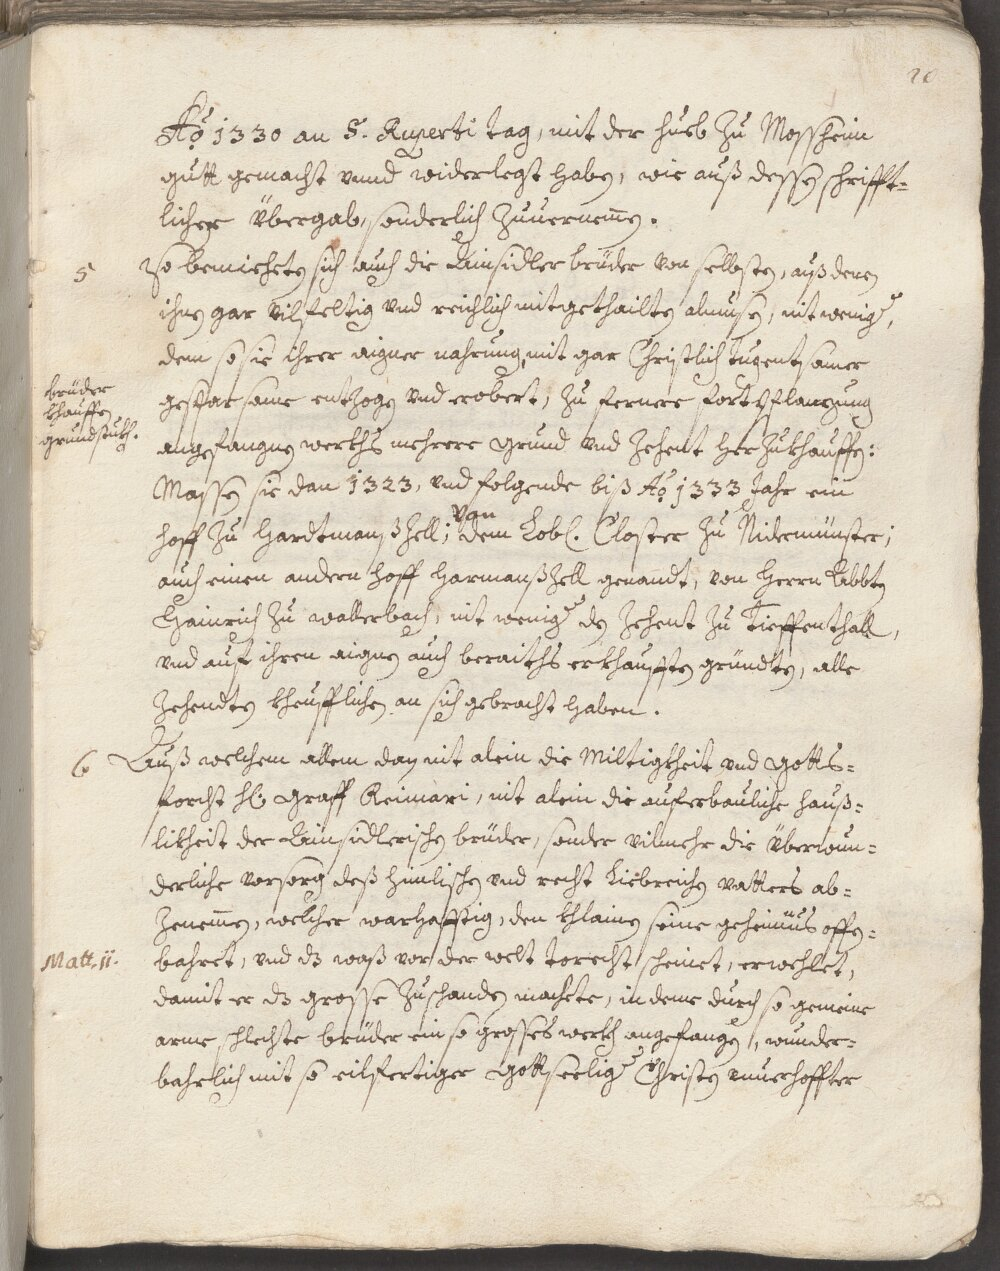 20
Aō 1330 an S. Ruperti tag, mit der hueb zu Mossheim
gutt gemacht vnnd widerlegt haben, wie auß dessen schrifft-
licher Übergab, sonderlich zuuernemen.
5 So bemiehten sich auch die Ainsidler brüder von selbsten, auß denen
ihnen gar vilfeltig vnd reichlich mitgethailten almusen, nit weniger,
dem so sie ihrer aigner nahrung, mit gar Christlich tugentsamer
brüder
khauffen
grundstukh.
gesparsame entzogen vnd erobert, zu fernere fortpflanzung
angefangnen werkhs mehrere grund vnd Zehent herzukhauffen:
Massen sie dan 1323, vnd folgende biß Aō 1333 Jahr ein
hoff zu Hardtmanßzell; von dem Lobl. Closter zu Nidermünster;
auch einen andern hoff Harmanßzell genandt, von Herrn Abbten
Hainrich zu wallerbach, nit weniger den Zehent zu Tieffenthall,
vnd auf ihren aignen auch beraiths erkhaufften gründten, alle
Zehendten kheufflichen an sich gebracht haben.
6 Auß welchem allem dan nit alein die Miltigkheit vnd Gotts-
forcht hl: Graff Reimari, nit alein die auferbauliche hauß-
likheit der Ainsidlerischen brüder, sonder vilmehr die überwun-
derliche vorsorg deß himlischen vnd recht Liebreichen vatters ab-
zenemen, welcher warhafftig, den khlainen seine geheimnus offen-
Matt. 11.
bahret, vnd dz waß vor der welt torecht scheinet, erwehlet,
damit er dz grosse zuschanden machete, in deme durch so gemeine
arme schlechte brüder ein so grosses werkh angefangen, wunder-
bahrlich mit so eilfertiger Gottseeliger Christen vnuerhoffter